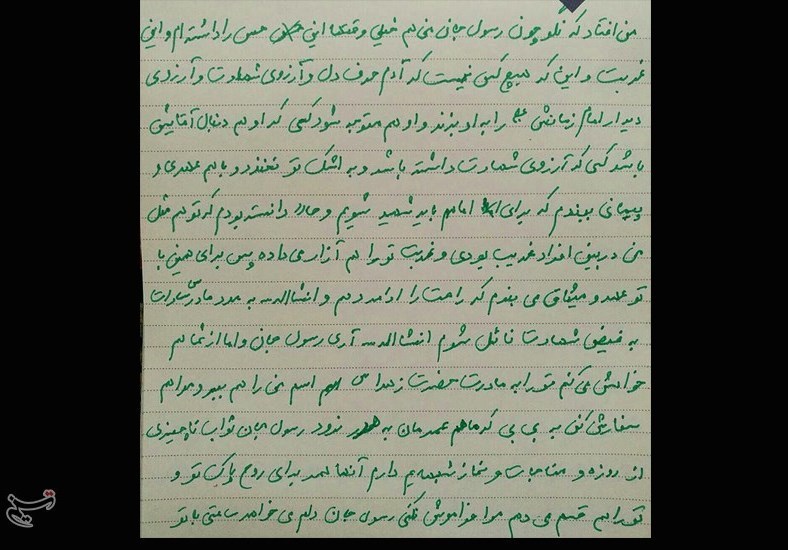 من افتاد که نکو چون رسول جان من هم خیلی وقتها این حس را داشته ام و این
غربت و این که هیچ کس نیست که آدم حرف دل و آرزوی شهادت و آرزوی
دیدار امام زمانش را به او بزند و او هم متوجه شود کسی که او هم دنبال آقایش
باشد کسی که آرزوی شهادت داشته باشد و به اشک تو نخندد و با هم عهدی و
پیمانی ببندم که برای امام باید شهید شویم و حالا دانسته بودم که تو هم مثل
من در بین افراد غریب بودی و غربت تو را هم آزار می داده پس برای همین با
تو عهد و میثاق می بندم که راهت را ادامه دهم و انشاالله به مدد مادر سادات
به فیض شهادت نائل شوم انشاالله آری رسول جان و اما از شما هم
خواهش می کنم تو را به مادرت حضرت زهرا س اسم من را هم ببر و مرا هم
سفارش کن به بی بی که ما هم عمرمان به هدر نرود رسول جان ثواب ناچیزی
از روزه و مناجات و نماز شبهایم دارم آنها همه برای روح پاک تو و
تو را هم قسم می دهم مرا فراموش نکنی رسول جان دلم می خواهد ساعتی با تو
تسنیم